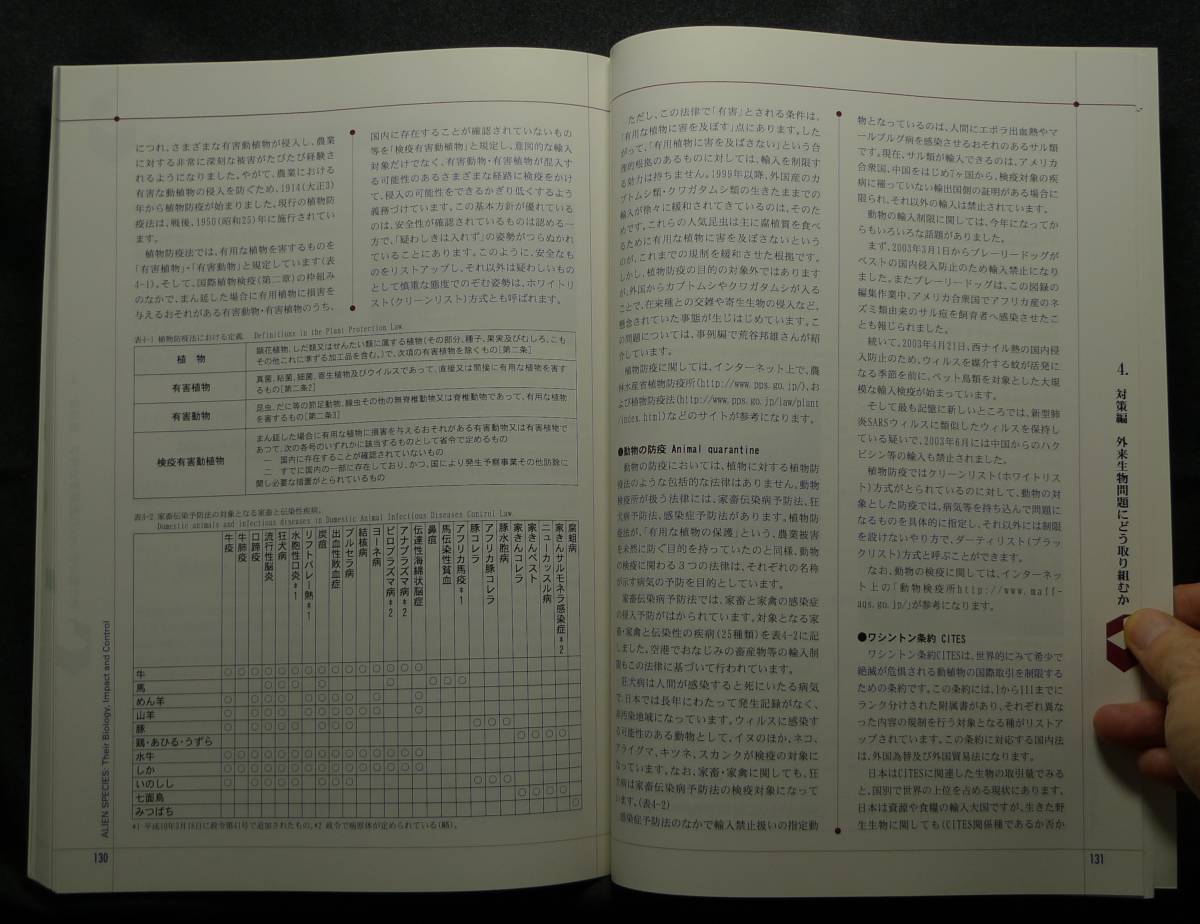 につれ、さまざまな有害動植物が侵入し、農業
に対する非常に深刻な被害がたびたび経験さ
れるようになりました。やがて、農業における
有害な動植物の侵入を防ぐため、1914(大正3)
年から植物防疫が始まりました。現行の植物防
疫法は、戦後、1950(昭和25)年に施行されてい
ます。
植物防疫法では、有用な植物を害するものを
「有害植物」・「有害動物」と規定しています(表
4-1)。そして、国際植物検疫(第二章)の枠組み
のなかで、まん延した場合に有用植物に損害を
与えるおそれがある有害動物・有害植物のうち、
国内に存在することが確認されていないもの
等を「検疫有害動植物」と規定し、意図的な輸入
対象だけでなく、有害動物・有害植物が混入す
る可能性のあるさまざまな経路に検疫をかけ
て、侵入の可能性をできるかぎり低くするよう
義務づけています。この基本方針が優れている
のは、安全性が確認されているものは認める一
方で、「疑わしきは入れず」の姿勢がつらぬかれ
ていることにあります。このように、安全なも
のをリストアップし、それ以外は疑わしいもの
として慎重な態度でのぞむ姿勢は、ホワイトリ
スト(クリーンリスト)方式とも呼ばれます。
表4-1 植物防疫法における定義 Definitions in the Plant Protection Law
植物
顕花植物、しだ類又はせんたい類に属する植物(その部分、種子、果実及びむしろ、こも
その他これに準ずる加工品を含む。)で、次項の有害植物を除くもの[第二条]
有害植物
真菌、粘菌、細菌、寄生植物及びウイルスであって、直接又は間接に有用な植物を害す
るもの[第二条2]
有害動物
昆虫、だに等の節足動物、線虫その他の無脊椎動物又は脊椎動物であって、有用な植物
を害するもの[第二条3]
検疫有害動植物
まん延した場合に有用な植物に損害を与えるおそれがある有害動物又は有害植物で
あつて、次の各号のいずれかに該当するものとして省令で定めるもの
一 国内に存在することが確認されていないもの
二 すでに国内の一部に存在しており、かつ、国により発生予察事業その他防除に
関し必要な措置がとられているもの
表4-2 家畜伝染予防法の対象となる家畜と伝染性疾病。
Domestic animals and infectious diseases in Domestic Animal Infectious Diseases Control Law
牛疫
牛肺疫
口蹄疫
流行性脳炎
狂犬病
水胞性口炎*1
リフトバレー熱*1
炭疽
出血性敗血症
ブルセラ病
結核病
ヨーネ病
ピロプラズマ病*2
アナプラズマ病*2
伝達性海綿状脳症
鼻疽
馬伝染性貧血
アフリカ馬疫*1
豚コレラ
アフリカ豚コレラ
豚水胞病
家きんコレラ
家きんペスト
ニューカッスル病
家きんサルモネラ感染症*2
腐蛆病
牛
馬
めん羊
山羊
豚
鶏・あひる・うずら
水牛
しか
いのしし
七面鳥
みつばち
*1 平成10年3月18日に政令第41号で追加されたもの。*2 政令で病原体が定められている(略)。
ALIEN SPECIES: Their Biology, Impact and Control
130
ただし、この法律で「有害」とされる条件は、
「有用な植物に害を及ぼす」点にあります。した
がって、「有用植物に害を及ぼさない」という合
理的根拠のあるものに対しては、輸入を制限す
る効力は持ちません。1999年以降、外国産のカ
ブトムシ類・クワガタムシ類の生きたままでの
輸入が徐々に緩和されてきているのは、そのた
めです。これらの人気昆虫は主に腐植質を食べ
るために有用な植物に害を及ぼさないという
のが、これまでの規制を緩和させた根拠です。
しかし、植物防疫の目的の対象外ではあります
が、外国からカブトムシやクワガタムシが入る
ことで、在来種との交雑や寄生生物の侵入など、
懸念されていた事態が生じはじめています。こ
の問題については、事例編で荒谷邦雄さんが紹
介しています。
植物防疫に関しては、インターネット上で、農
林水産省植物防疫所(http://www.pps.go.jp/)、お
よび植物防疫法(http://www.pps.go.jp/law/plant
/index.html)などのサイトが参考になります。
●動物の防疫 Animal quarantine
動物の防疫においては、植物に対する植物防
疫法のような包括的な法律はありません。動物
検疫所が扱う法律には、家畜伝染病予防法、狂
犬病予防法、感染症予防法があります。植物防
疫法が、「有用な植物の保護」という、農業被害
を未然に防ぐ目的を持っていたのと同様、動物
の検疫に関わる3つの法律は、それぞれの名称
が示す病気の予防を目的としています。
家畜伝染病予防法では、家畜と家禽の感染症
の侵入予防がはかられています。対象となる家
畜・家禽と伝染性の疾病(25種類)を表4-2に記
しました。空港でおなじみの畜産物等の輸入制
限もこの法律に基づいて行われています。
狂犬病は人間が感染すると死にいたる病気
で、日本では長年にわたって発生記録がなく、
非汚染地域になっています。ウィルスに感染す
る可能性のある動物として、イヌのほか、ネコ、
アライグマ、キツネ、スカンクが検疫の対象に
なっています。なお、家畜・家禽に関しても、狂
犬病は家畜伝染病予防法の検疫対象になって
います。(表4-2)
感染症予防法のなかで輸入禁止扱いの指定動
物となっているのは、人間にエボラ出血熱やマ
ールブルグ病を感染させるおそれのあるサル類
です。現在、サル類が輸入できるのは、アメリカ
合衆国、中国をはじめ7ヶ国から、検疫対象の疾
病に罹っていない輸出国側の証明がある場合に
限られ、それ以外の輸入は禁止されています。
動物の輸入制限に関しては、今年になってか
らもいろいろな話題がありました。
まず、2003年3月1日からプレーリードッグが
ペストの国内侵入防止のため輸入禁止になり
ました。またプレーリードッグは、この図録の
編集作業中、アメリカ合衆国でアフリカ産のネ
ズミ類由来のサル痘を飼育者へ感染させたこ
とも報じられました。
続いて、2003年4月21日、西ナイル熱の国内侵
入防止のため、ウィルスを媒介する蚊が活発に
なる季節を前に、ペット鳥類を対象とした大規
模な輸入検疫が始まっています。
そして最も記憶に新しいところでは、新型肺
炎SARSウィルスに類似したウィルスを保持し
ている疑いで、2003年6月には中国からのハク
ビシン等の輸入も禁止されました。
植物防疫ではクリーンリスト(ホワイトリス
ト)方式がとられているのに対して、動物の対
象とした防疫では、病気等を持ち込んで問題に
なるものを具体的に指定し、それ以外には制限
を設けないやり方で、ダーティリスト(ブラッ
クリスト)方式と呼ぶことができます。
なお、動物の検疫に関しては、インターネッ
ト上の「動物検疫所http://www.maff-
aqs.go.jp/」が参考になります。
●ワシントン条約 CITES
ワシントン条約CITESは、世界的にみて希少で
絶滅が危惧される動植物の国際取引を制限する
ための条約です。この条約には、IからIIIまでに
ランク分けされた附属書があり、それぞれ異な
った内容の規制を行う対象となる種がリストア
ップされています。この条約に対応する国内法
は、外国為替及び外国貿易法になります。
日本はCITESに関連した生物の取引量でみる
と、国別で世界の上位を占める現状にあります。
日本は資源や食糧の輸入大国ですが、生きた野
生生物に関しても(CITES関係種であるか否か
4. 対策編 外来生物問題にどう取り組むか
131